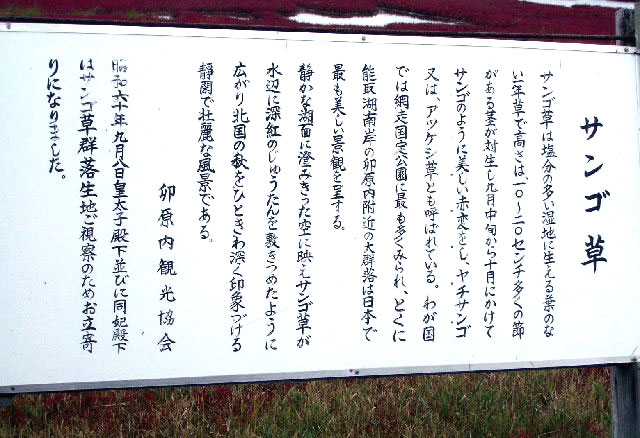 サンゴ草
サンゴ草は塩分の多い湿地に生える葉のな
い一年草で高さは一〇〜二〇センチ多くの節
がある茎が対生し九月中旬から十月にかけて
サンゴのように美しい赤変をし、ヤチサンゴ
又は、アツケシ草とも呼ばれている。わが国
では網走国定公園に最も多くみられ、とくに
能取湖南岸の卯原内附近の大群落は日本で
最も美しい景観を呈する。
静かな湖面に澄みきった空に映えサンゴ草が
水辺に深紅のじゅうたんを敷きつめたように
広がり北国の秋をひときわ深く印象づける
静閑で壮麗な風景である。
卯原内観光協会
昭和六十年九月八日皇太子殿下並びに同妃殿下
はサンゴ草群落生地ご視察のためお立寄
りになりました。